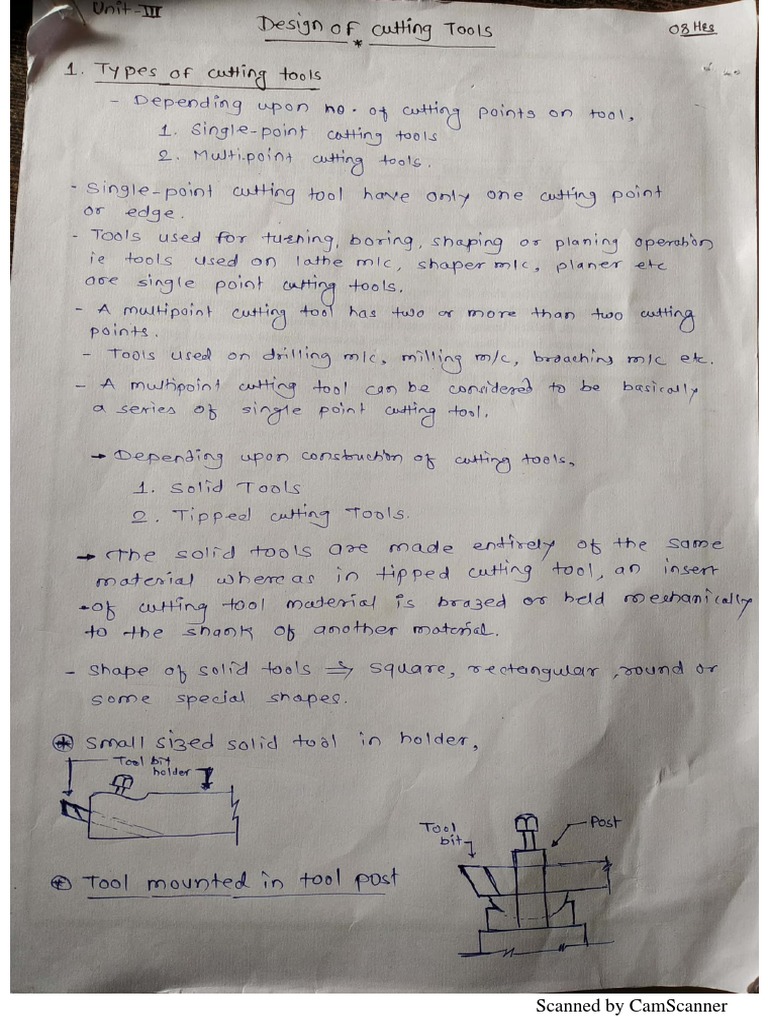 Unit-III
Design of Cutting Tools
08 Hrs
*
1. Types of cutting tools
- Depending upon no. of cutting points on tool,
1. Single-point cutting tools
2. Multipoint cutting tools.
- Single-point cutting tool have only one cutting point
or edge.
- Tools used for turning, boring, shaping or planing operation
ie tools used on lathe m/c, shaper m/c, planer etc
are single point cutting tools.
- A multipoint cutting tool has two or more than two cutting
points.
- Tools used on drilling m/c, milling m/c, broaching m/c etc.
- A multipoint cutting tool can be considered to be basically
a series of single point cutting tool.
→ Depending upon construction of cutting tools,
1. Solid Tools
2. Tipped cutting Tools.
→ The solid tools are made entirely of the same
material where as in tipped cutting tool, an insert
of cutting tool material is brazed or held mechanically
to the shank of another material.
- Shape of solid tools ⇒ square, rectangular, round or
some special shapes.
* Small sized solid tool in holder,
Tool bit
holder
Tool
bit
Post
* Tool mounted in tool post
Scanned by CamScanner